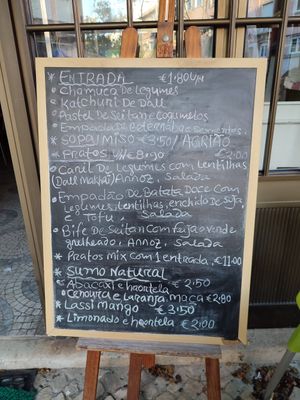 * ENTRADA €1.80UM
• Chamuça de Legumes
• Katchuri de Dall
• Pastel de Seitan e cogumelos
• Empada de Beternaba e sementes.
* SOPA/MISO €3.50/AGRIÃO
* Pratos €8.90 €2.00
• Caril de Legumes com Lentilhas
(Dall Makhai) Arroz, Salada
• Empadão de Batata Doce com
Legumes, Lentilhas, enchido de Soja,
e Tofu, Salada
• Bife de Seitan com feijão verde
grelheado, Arroz, Salada
* Pratos mix com 1 entrada, €11.00
* Sumo Natural
• Abacaxi e hortela €2.50
• Cenoura e Laranja, maça €2.80
* Lassi mango €3.50
* Limonado e hortela €2.00